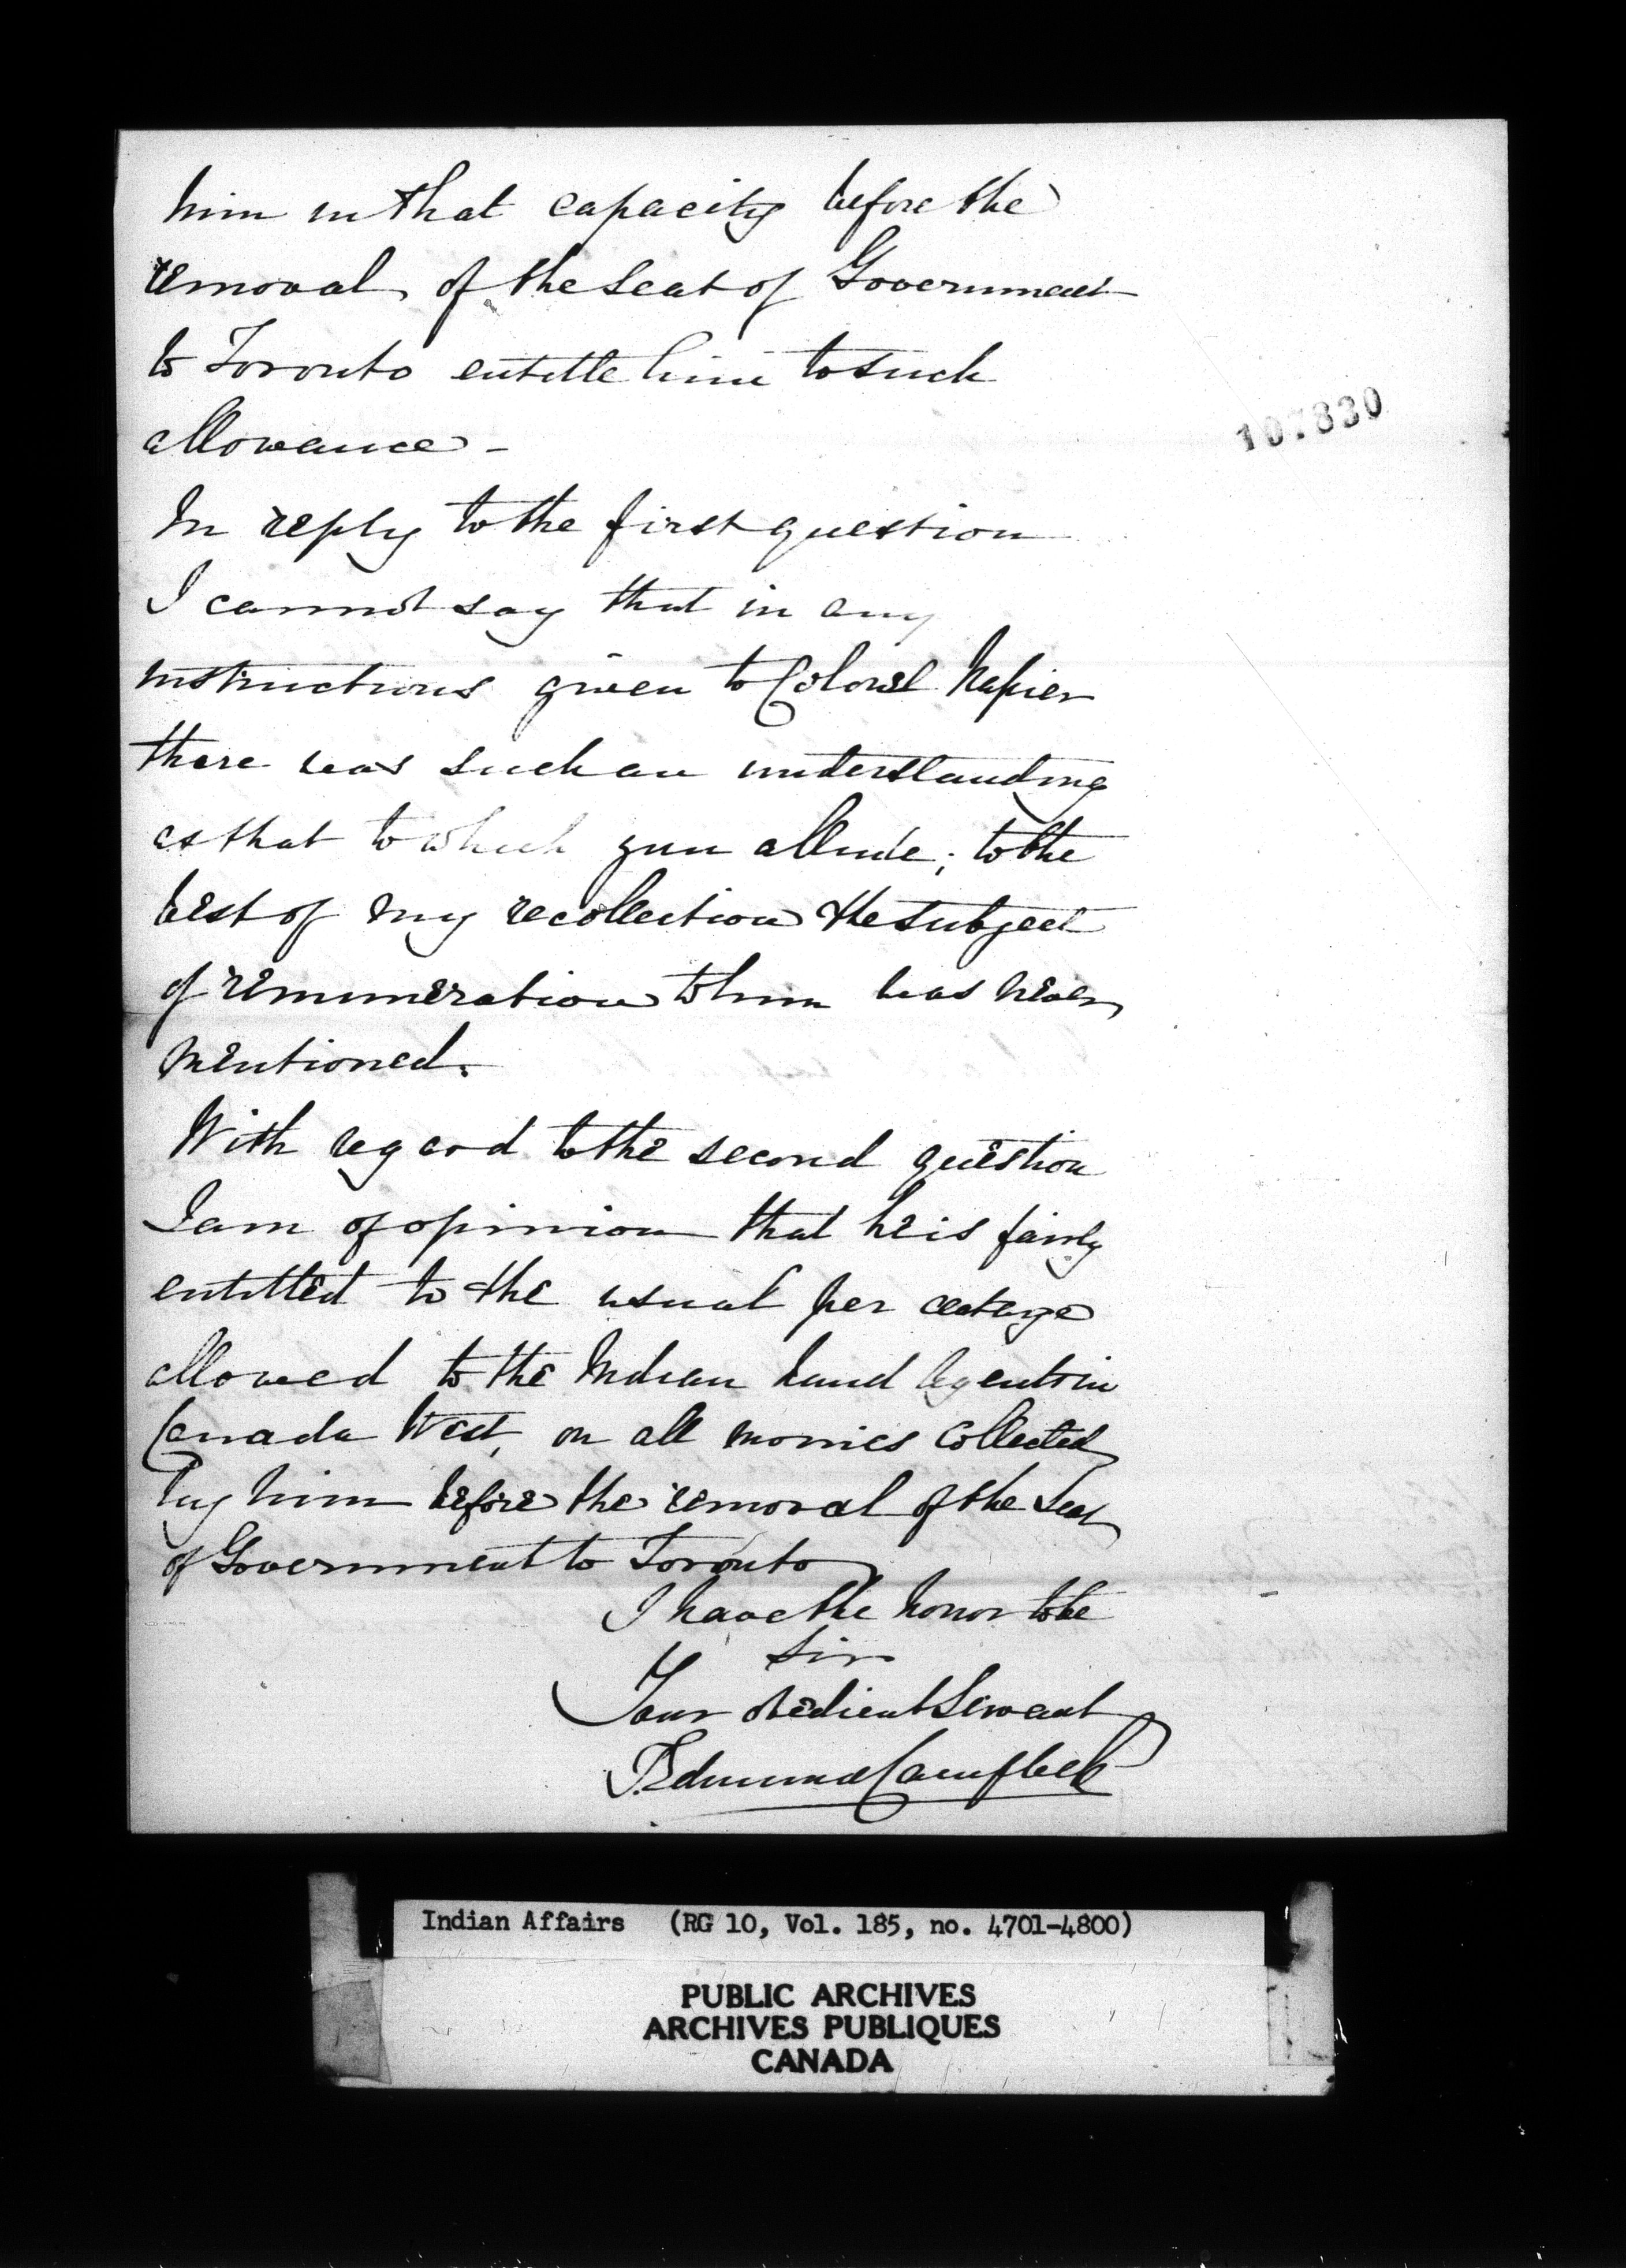 him in that capacity before the
removal of the Seat of Government
to Toronto entitle him to such
allowance -
107830
In reply to the first question
I cannot say that in any
instructions given to Colonel Napier
there was such an understanding
as that to which you allude; to the
best of my recollection the subject
of remuneration to him was never
mentioned.
With regard to the second question
I am of opinion that he is fairly
entitled to the usual per centage
allowed to the Indian Land Agents in
Canada West, on all monies collected
by him before the removal of the Seat
of Government to Toronto
I have the honor to be
Sir
Your obedient Servant
T. Edmund Campbell
Indian Affairs (RG 10, Vol. 185, no. 4701-4800)
PUBLIC ARCHIVES
ARCHIVES PUBLIQUES
CANADA